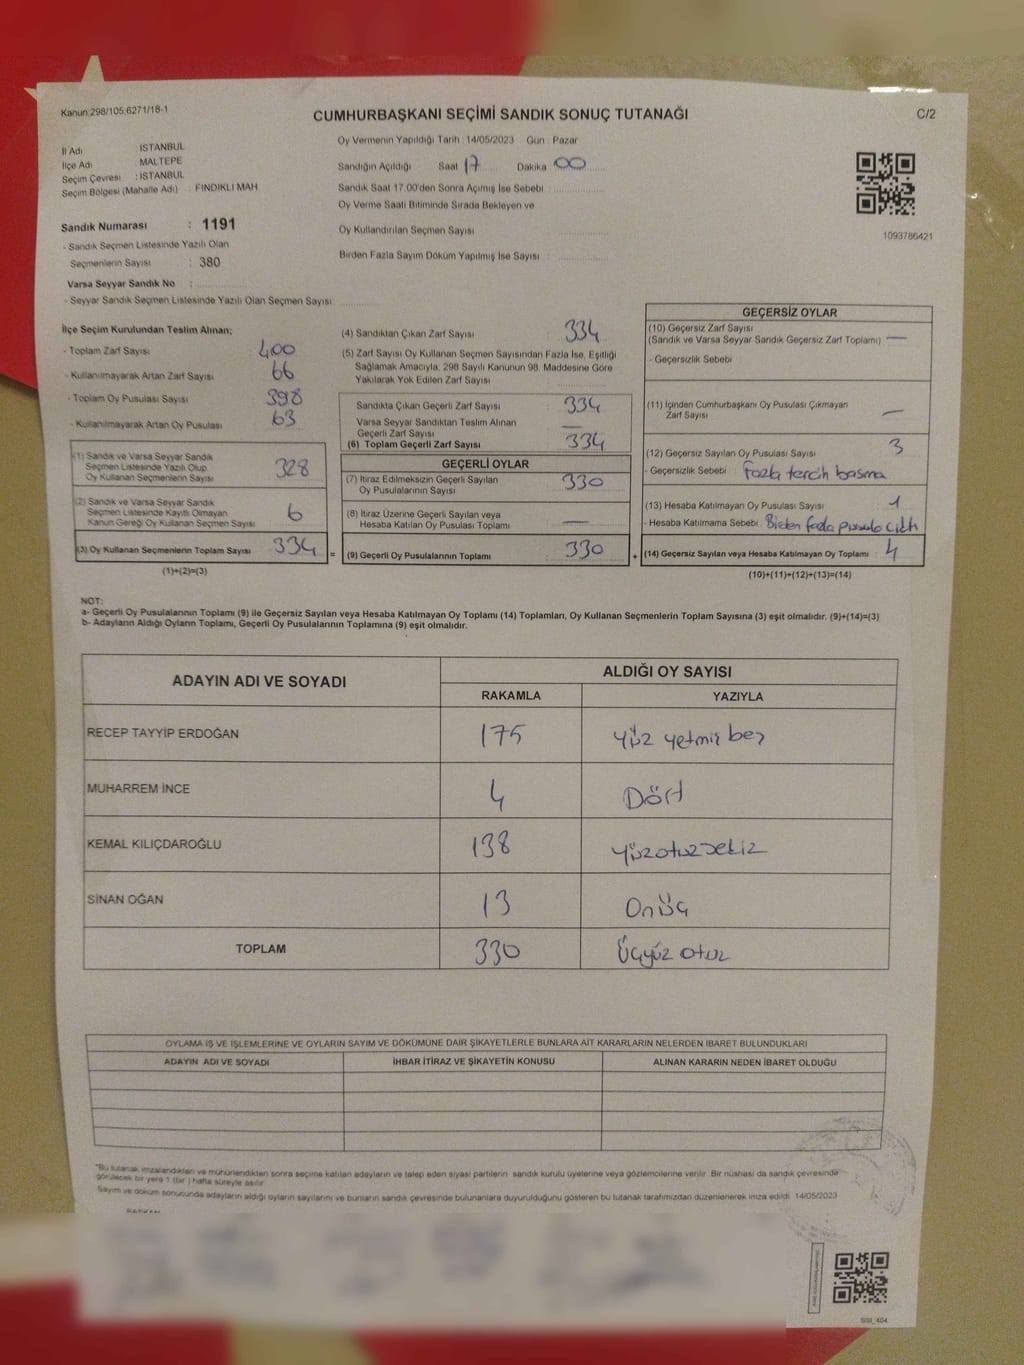 Kanun:298/105,6271/18-1
CUMHURBAŞKANI SEÇİMİ SANDIK SONUÇ TUTANAĞI
C/2
Oy Vermenin Yapıldığı Tarih : 14/05/2023 Gün : Pazar
İl Adı : İSTANBUL
İlçe Adı MALTEPE
Seçim Çevresi : İSTANBUL
Seçim Bölgesi (Mahalle Adı) : FINDIKLI MAH
Sandığın Açıldığı Saat 17 Dakika 00
Sandık Saat 17.00'den Sonra Açımış İse Sebebi :
Oy Verme Saati Bitiminde Sırada Bekleyen ve
Oy Kullandırılan Seçmen Sayısı
Birden Fazla Sayım Döküm Yapılmış İse Sayısı :
1093786421
Sandık Numarası : 1191
- Sandık Seçmen Listesinde Yazılı Olan
Seçmenlerin Sayısı : 380
Varsa Seyyar Sandık No :
- Seyyar Sandık Seçmen Listesinde Yazılı Olan Seçmen Sayısı
İlçe Seçim Kurulundan Teslim Alınan;
- Toplam Zarf Sayısı 400
- Kullanılmayarak Artan Zarf Sayısı 66
- Toplam Oy Pusulası Sayısı 398
- Kullanılmayarak Artan Oy Pusulası 63
(1) Sandık ve Varsa Seyyar Sandık
Seçmen Listesinde Yazılı Olup
Oy Kullanan Seçmenlerin Sayısı 328
(2) Sandık ve Varsa Seyyar Sandık
Seçmen Listesinde Kayıtlı Olmayan
Kanun Gereği Oy Kullanan Seçmen Sayısı 6
(3) Oy Kullanan Seçmenlerin Toplam Sayısı 334 =
(1)+(2)=(3)
(4) Sandıktan Çıkan Zarf Sayısı : 334
(5) Zarf Sayısı Oy Kullanan Seçmen Sayısından Fazla İse, Eşitliği
Sağlamak Amacıyla, 298 Sayılı Kanunun 98. Maddesine Göre
Yakılarak Yok Edilen Zarf Sayısı
Sandıkta Çıkan Geçerli Zarf Sayısı : 334
Varsa Seyyar Sandıktan Teslim Alınan
Geçerli Zarf Sayısı : —
(6) Toplam Geçerli Zarf Sayısı : 334
GEÇERLİ OYLAR
(7) İtiraz Edilmeksizin Geçerli Sayılan
Oy Pusulalarının Sayısı : 330
(8) İtiraz Üzerine Geçerli Sayılan veya
Hesaba Katılan Oy Pusulası Toplamı : —
(9) Geçerli Oy Pusulalarının Toplamı : 330 +
GEÇERSİZ OYLAR
(10) Geçersiz Zarf Sayısı
(Sandık ve Varsa Seyyar Sandık Geçersiz Zarf Toplamı) : —
- Geçersizlik Sebebi
(11) İçinden Cumhurbaşkanı Oy Pusulası Çıkmayan
Zarf Sayısı —
(12) Geçersiz Sayılan Oy Pusulası Sayısı : 3
- Geçersizlik Sebebi : Fazla tercih basma
(13) Hesaba Katılmayan Oy Pusulası Sayısı : 1
- Hesaba Katılmama Sebebi : Birden fazla pusula çıktı
(14) Geçersiz Sayılan veya Hesaba Katılmayan Oy Toplamı : 4
(10)+(11)+(12)+(13)=(14)
NOT:
a- Geçerli Oy Pusulalarının Toplamı (9) ile Geçersiz Sayılan veya Hesaba Katılmayan Oy Toplamı (14) Toplamları, Oy Kullanan Seçmenlerin Toplam Sayısına (3) eşit olmalıdır. (9)+(14)=(3)
b- Adayların Aldığı Oyların Toplamı, Geçerli Oy Pusulalarının Toplamına (9) eşit olmalıdır.
ADAYIN ADI VE SOYADI
ALDIĞI OY SAYISI
RAKAMLA YAZIYLA
RECEP TAYYİP ERDOĞAN 175 Yüz yetmiş beş
MUHARREM İNCE 4 Dört
KEMAL KILIÇDAROĞLU 138 Yüzotuzsekiz
SİNAN OĞAN 13 Onüç
TOPLAM 330 Üçyüz otuz
OYLAMA İŞ VE İŞLEMLERİNE VE OYLARIN SAYIM VE DÖKÜMÜNE DAİR ŞİKAYETLERLE BUNLARA AİT KARARLARIN NELERDEN İBARET BULUNDUKLARI
ADAYIN ADI VE SOYADI İHBAR İTİRAZ VE ŞİKAYETİN KONUSU ALINAN KARARIN NEDEN İBARET OLDUĞU
"Bu tutanak imzalandıktan ve mühürlendikten sonra seçime katılan adayların ve talep eden siyasi partilerin sandık kurulu üyelerine veya gözlemcilerine verilir. Bir nüshası da sandık çevresinde
görülecek bir yere 1 (bir ) hafta süreyle asılır.
Sayım ve döküm sonucunda adayların aldığı oyların sayılarını ve bunların sandık çevresinde bulunanlara duyurulduğunu gösteren bu tutanak tarafımızdan düzenlenerek imza edildi. 14/05/2023